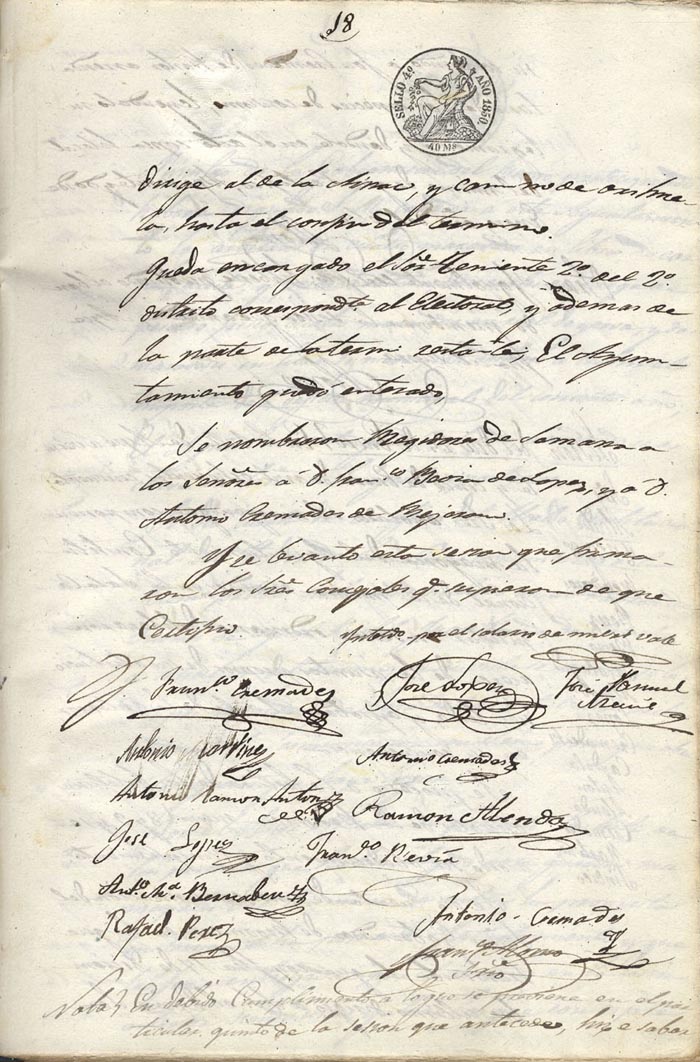 18
SELLO 4º AÑO 1850.
40 Ms
dirige al de la , y camino de
la, hasta el confin del termino.
Queda encargado el Sor. Teniente 2º del 2º
distrito correspondte. al Electoral, y ademas de
la parte de la restante; El Ayun-
tamiento quedó enterado,
Se nombraron Regidores de Semana a
los Señores a D. Franco. de Lopez, y a D.
Antonio Cremades de Bejaran.
Y se levantó esta sesion que firma-
ron los Sres. Concejales q. supieron de que
Certifico. por el de vale
Franco. Cremades José Lopez José Manuel
Antonio Martinez Antonio Cremades
Antonio Ramon Antón Ramon Alenda
José Lopez Franco.
Anto. Ma. Bernabeu
Rafael Perez Antonio Cremades
Franco. Alonso
Srio
Nota. En debido Cumplimiento a lo que se previene en el par-
ticular, quinto de la sesion que antecede, hize saber